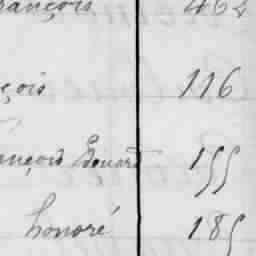 rançois 462
çois 116
ançois Edouard 155
honoré 185